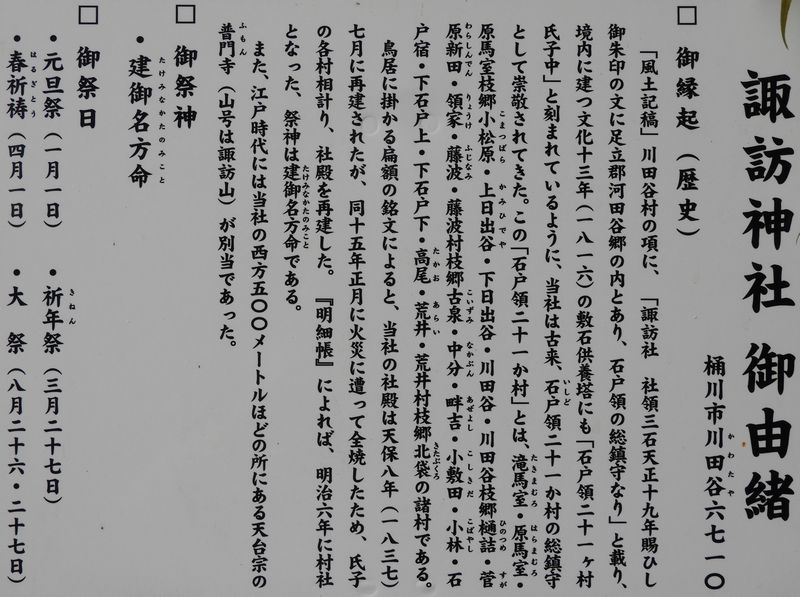 諏訪神社 御由緒
桶川市川田谷六七一〇
□ 御縁起（歴史）
「風土記稿」川田谷村の項に、「諏訪社 社領三石天正十九年賜ひし
御朱印の文に足立郡河田谷郷の内とあり、石戸領の総鎮守なり」と載り、
境内に建つ文化十三年（一八一六）の敷石供養塔にも「石戸領二十一ヶ村
氏子中」と刻まれているように、当社は古来、石戸領二十一か村の総鎮守
として崇敬されてきた。この「石戸領二十一か村」とは、滝馬室・原馬室・
原馬室枝郷小松原・上日出谷・下日出谷・川田谷・川田谷枝郷樋詰・菅
原新田・領家・藤波・藤波村枝郷古泉・中分・畔吉・小敷田・小林・石
戸宿・下石戸上・下石戸下・高尾・荒井・荒井村枝郷北袋の諸村である。
鳥居に掛かる扁額の銘文によると、当社の社殿は天保八年（一八三七）
七月に再建されたが、同十五年正月に火災に遭って全焼したため、氏子
の各村相計り、社殿を再建した。『明細帳』によれば、明治六年に村社
となった、祭神は建御名方命である。
また、江戸時代には当社の西方五〇〇メートルほどの所にある天台宗の
普門寺（山号は諏訪山）が別当であった。
□ 御祭神
・建御名方命
□ 御祭日
・元旦祭（一月一日） ・祈年祭（三月二十七日）
・春祈祷（四月一日） ・大 祭（八月二十六・二十七日）